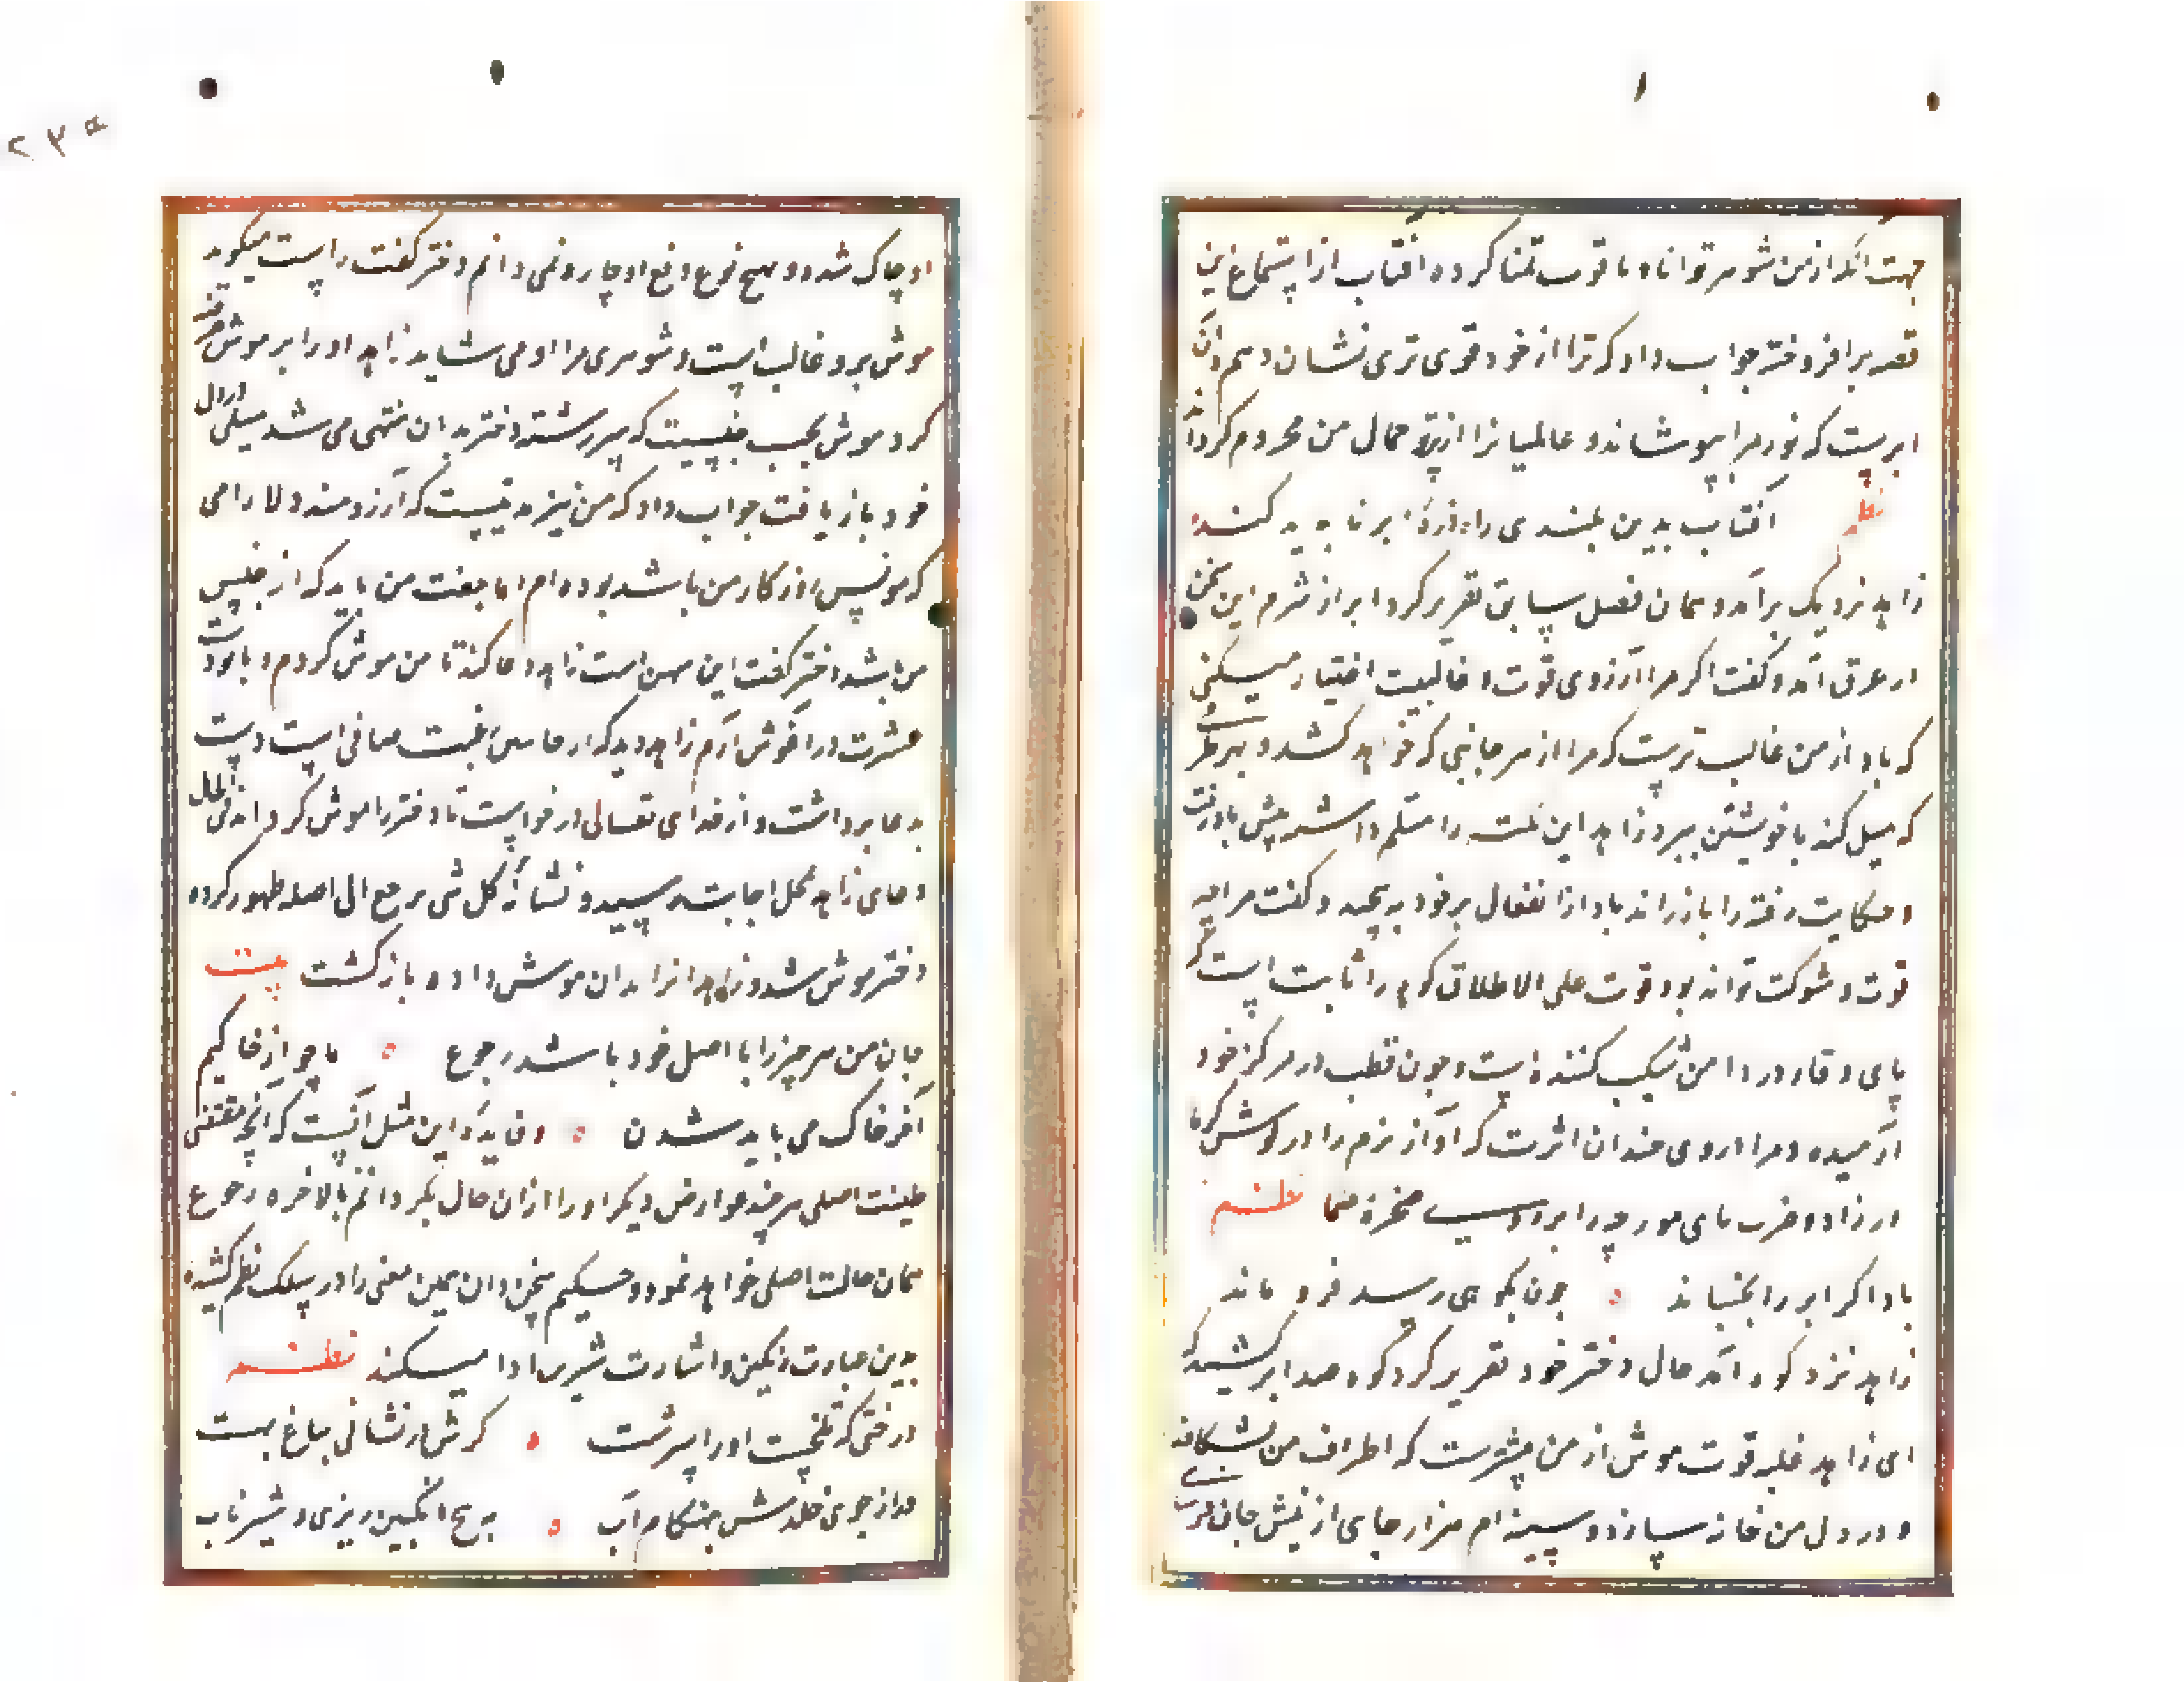 جهت آنکه از من شوهر توانا و با قوت تمنا کرده آفتاب از استماع این
قصه برافروخته جواب داد که ترا از خود قوی تری نشان دهم و آن
ابریست که نور مرا بپوشاند و عالمیانرا از پرتو جمال من محروم گرداند
نظم آفتاب بدین بلندی را ذره ابر ناپدید کند
زاهد نزدیک بر آمد و همان فصل سابق تقریر کرد ابر از شرم این سخن
در عرق آمد و گفت اگر مرا از روی قوت و غالبیت اختیار میکنی
که باد از من غالب ترست که مرا از هر جانبی که خواهد کشد و بهر طرف
که میل کند با خویشتن ببرد زاهد این نکته را مسلم داشته پیش باد رفت
و حکایت رفته را باز راند باد از انفعال بر خود بپیچید و گفت مرا چه
قوت و شوکت تواند بود قوت علی الاطلاق کوه را ثابت است که
پای وقار در دامن شکیب کشیده است و چون قطب در مرکز خود
آرمیده و مرا در وی چندان اثرست که آواز نرم را در گوش کر
مادر زاد و ضرب پای مورچه را بر روی صخره صما نظم
باد اگر ابر را بجنباند چون بکوهی رسد فرو ماند
زاهد نزد کوه آمد حال دختر خود تقریر کرد کوه صدا برکشید که
ای زاهد غلبه قوت موش از من بیشترست که اطراف من بشکافد
و در دل من خانه سازد و سینه ام هزار جای از نیش جان
او چاک شده و بهیچ نوع دفع او چاره نمی دانم دختر گفت راست میگوید
موش برو غالب است و شوهری مرا او می شاید زاهد او را بر موش عرضه
کرد موش بحسب جنسیت که سر رشته دختر بدان منتهی می شد میلی در دل
خود باز یافت جواب داد که من نیز مدتیست که آرزومند دلارامی
که مونس روزگار من باشد بوده ام اما جفت من باید که از جنس
من باشد دختر گفت این سهل است زاهد دعا کند تا من موش گردم و با تو دست
عشرت در آغوش آرم زاهد دید که از جانبین رغبت صافی است دست
بدعا برداشت و از خدای تعالی در خواست تا دختر را موش گرداند فی الحال
دعای زاهد محل اجابت رسید و نشانه کل شی یرجع الی اصله ظهور کرده
دختر موش شد و زاهد او را بدان موش داده بازگشت بیت
جان من هر چیز را با اصل خود باشد رجوع ما چو از خاکیم
آخر خاک می باید شدن و فایده این مثل آنست که آنچه مقتضی
طینت اصلی هر چند عوارض دیگر او را از آن حال بگرداند بالاخره رجوع
همان حالت اصلی خواهد نمود و حکیم سخن دان همین معنی را در سلک نظم کشیده
بدین عبارت رنگین و اشارت شیرین ادا میکند نظم
درختی که تلخست او را سرشت گرش در نشانی بباغ بهشت
ور از جوی خلدش بهنگام آب به بیخ انگبین ریزی و شیر ناب